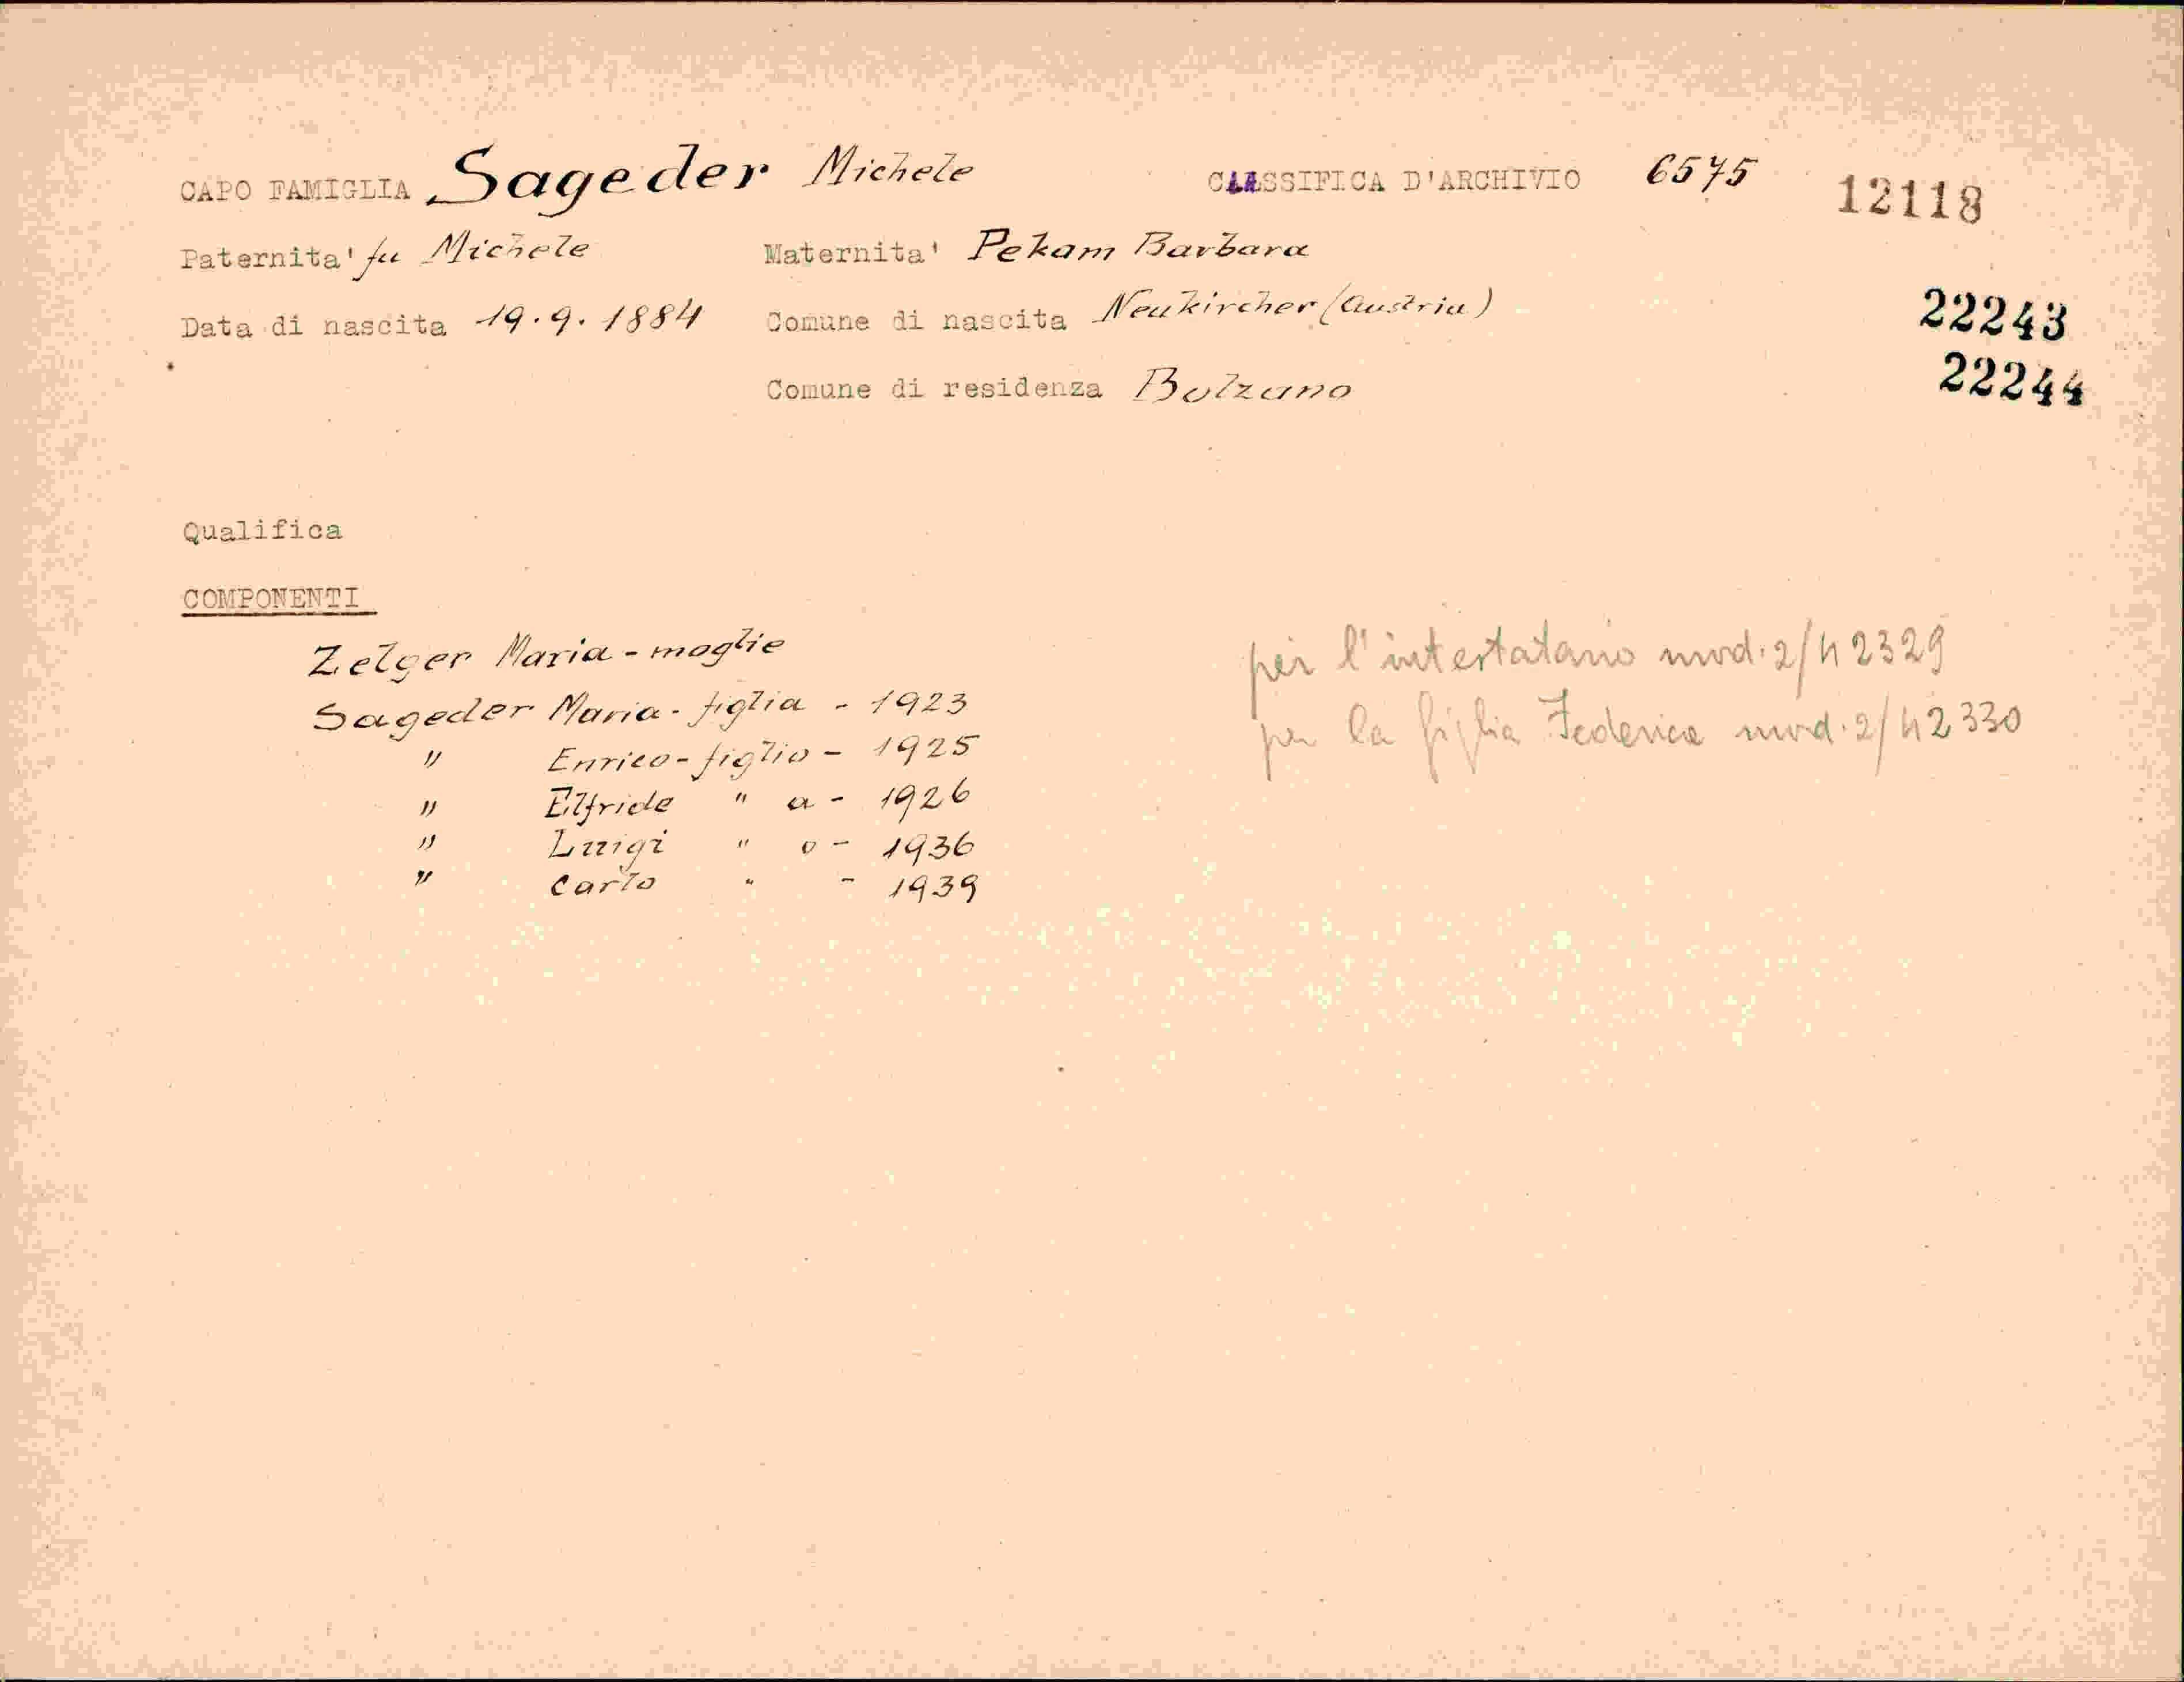 CAPO FAMIGLIA Sageder Michele CLASSIFICA D'ARCHIVIO 6575 12118
Paternita' fu Michele Maternita' Pekam Barbara
Data di nascita 19.9.1884 Comune di nascita Neukircher (Austria) 22243
Comune di residenza Bolzano 22244
Qualifica
COMPONENTI
Zelger Maria - moglie
Sageder Maria - figlia - 1923
" Enrico - figlio - 1925
" Elfride " a - 1926
" Luigi " o - 1936
" Carlo " - 1939
per l'intestatario mod. 2/42329
per la figlia Federica mod. 2/42330